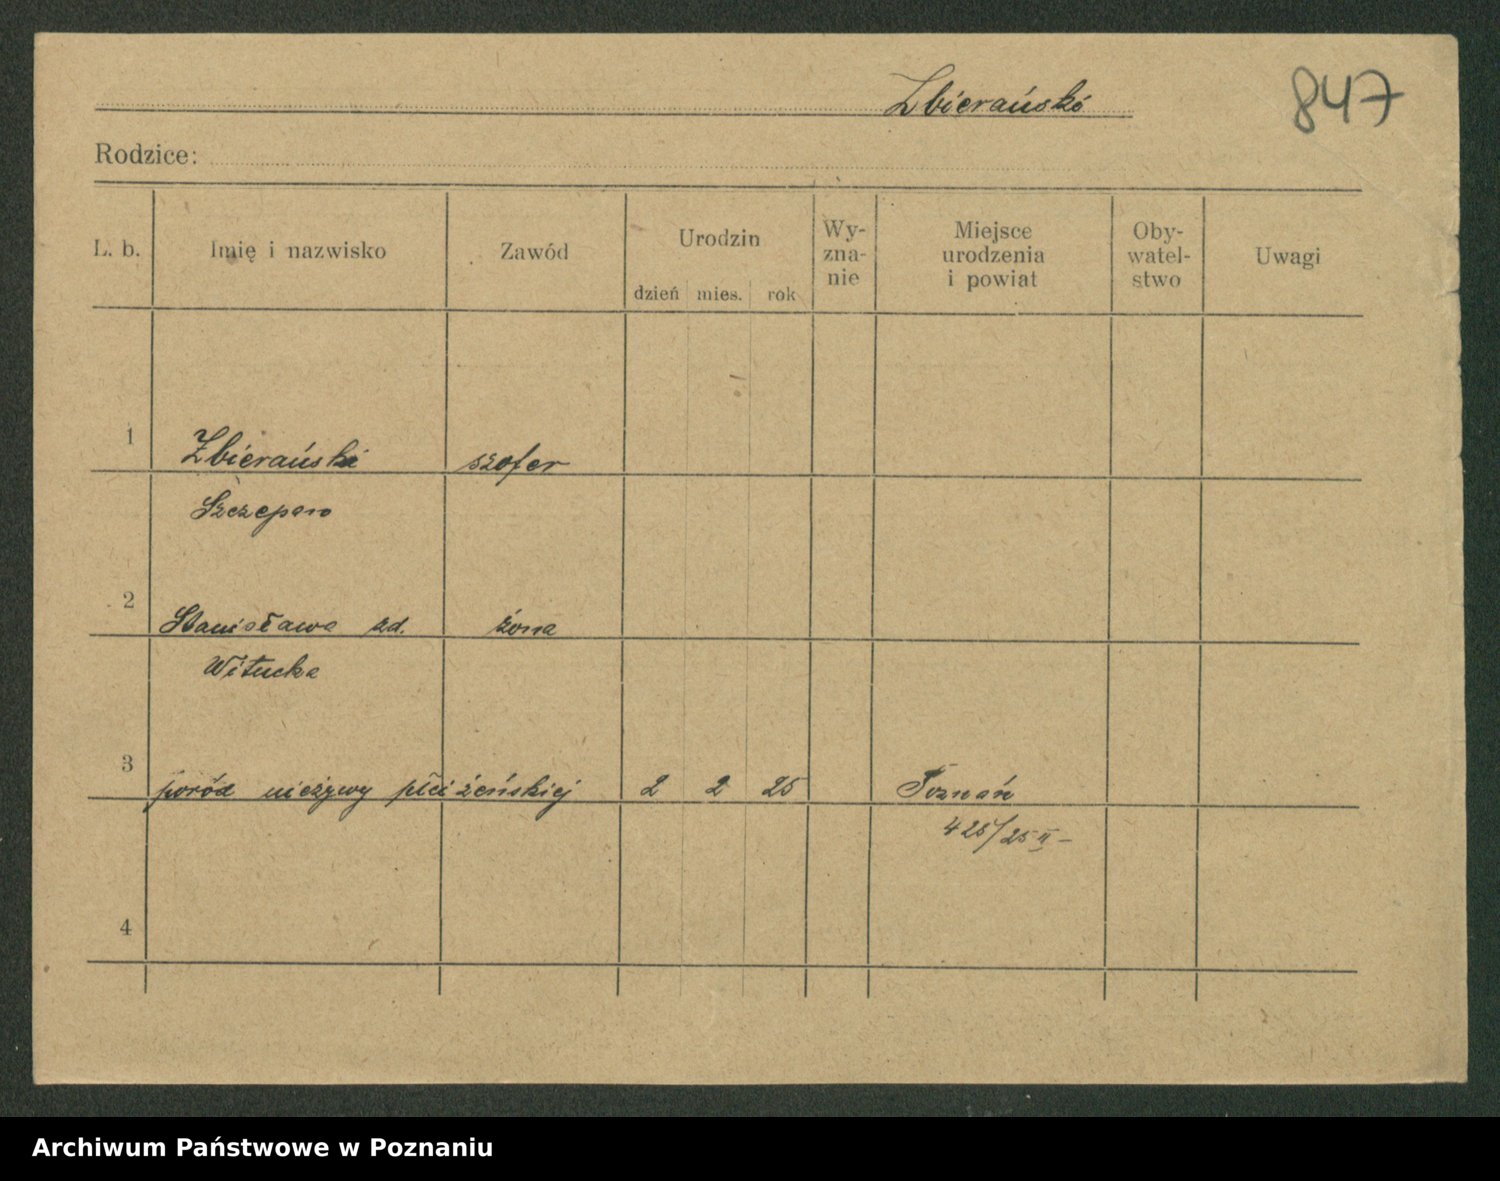 Zbierański
847
Rodzice:
L. b. Imię i nazwisko Zawód Urodzin dzień mies. rok Wy-
zna-
nie Miejsce
urodzenia
i powiat Oby-
watel-
stwo Uwagi
1 Zbierański szofer
Szczepan
2 Stanisława zd. żona
Witucka
3 poród nieżywy płci żeńskiej 2 2 25 Poznań
425/25 II –
4
Archiwum Państwowe w Poznaniu